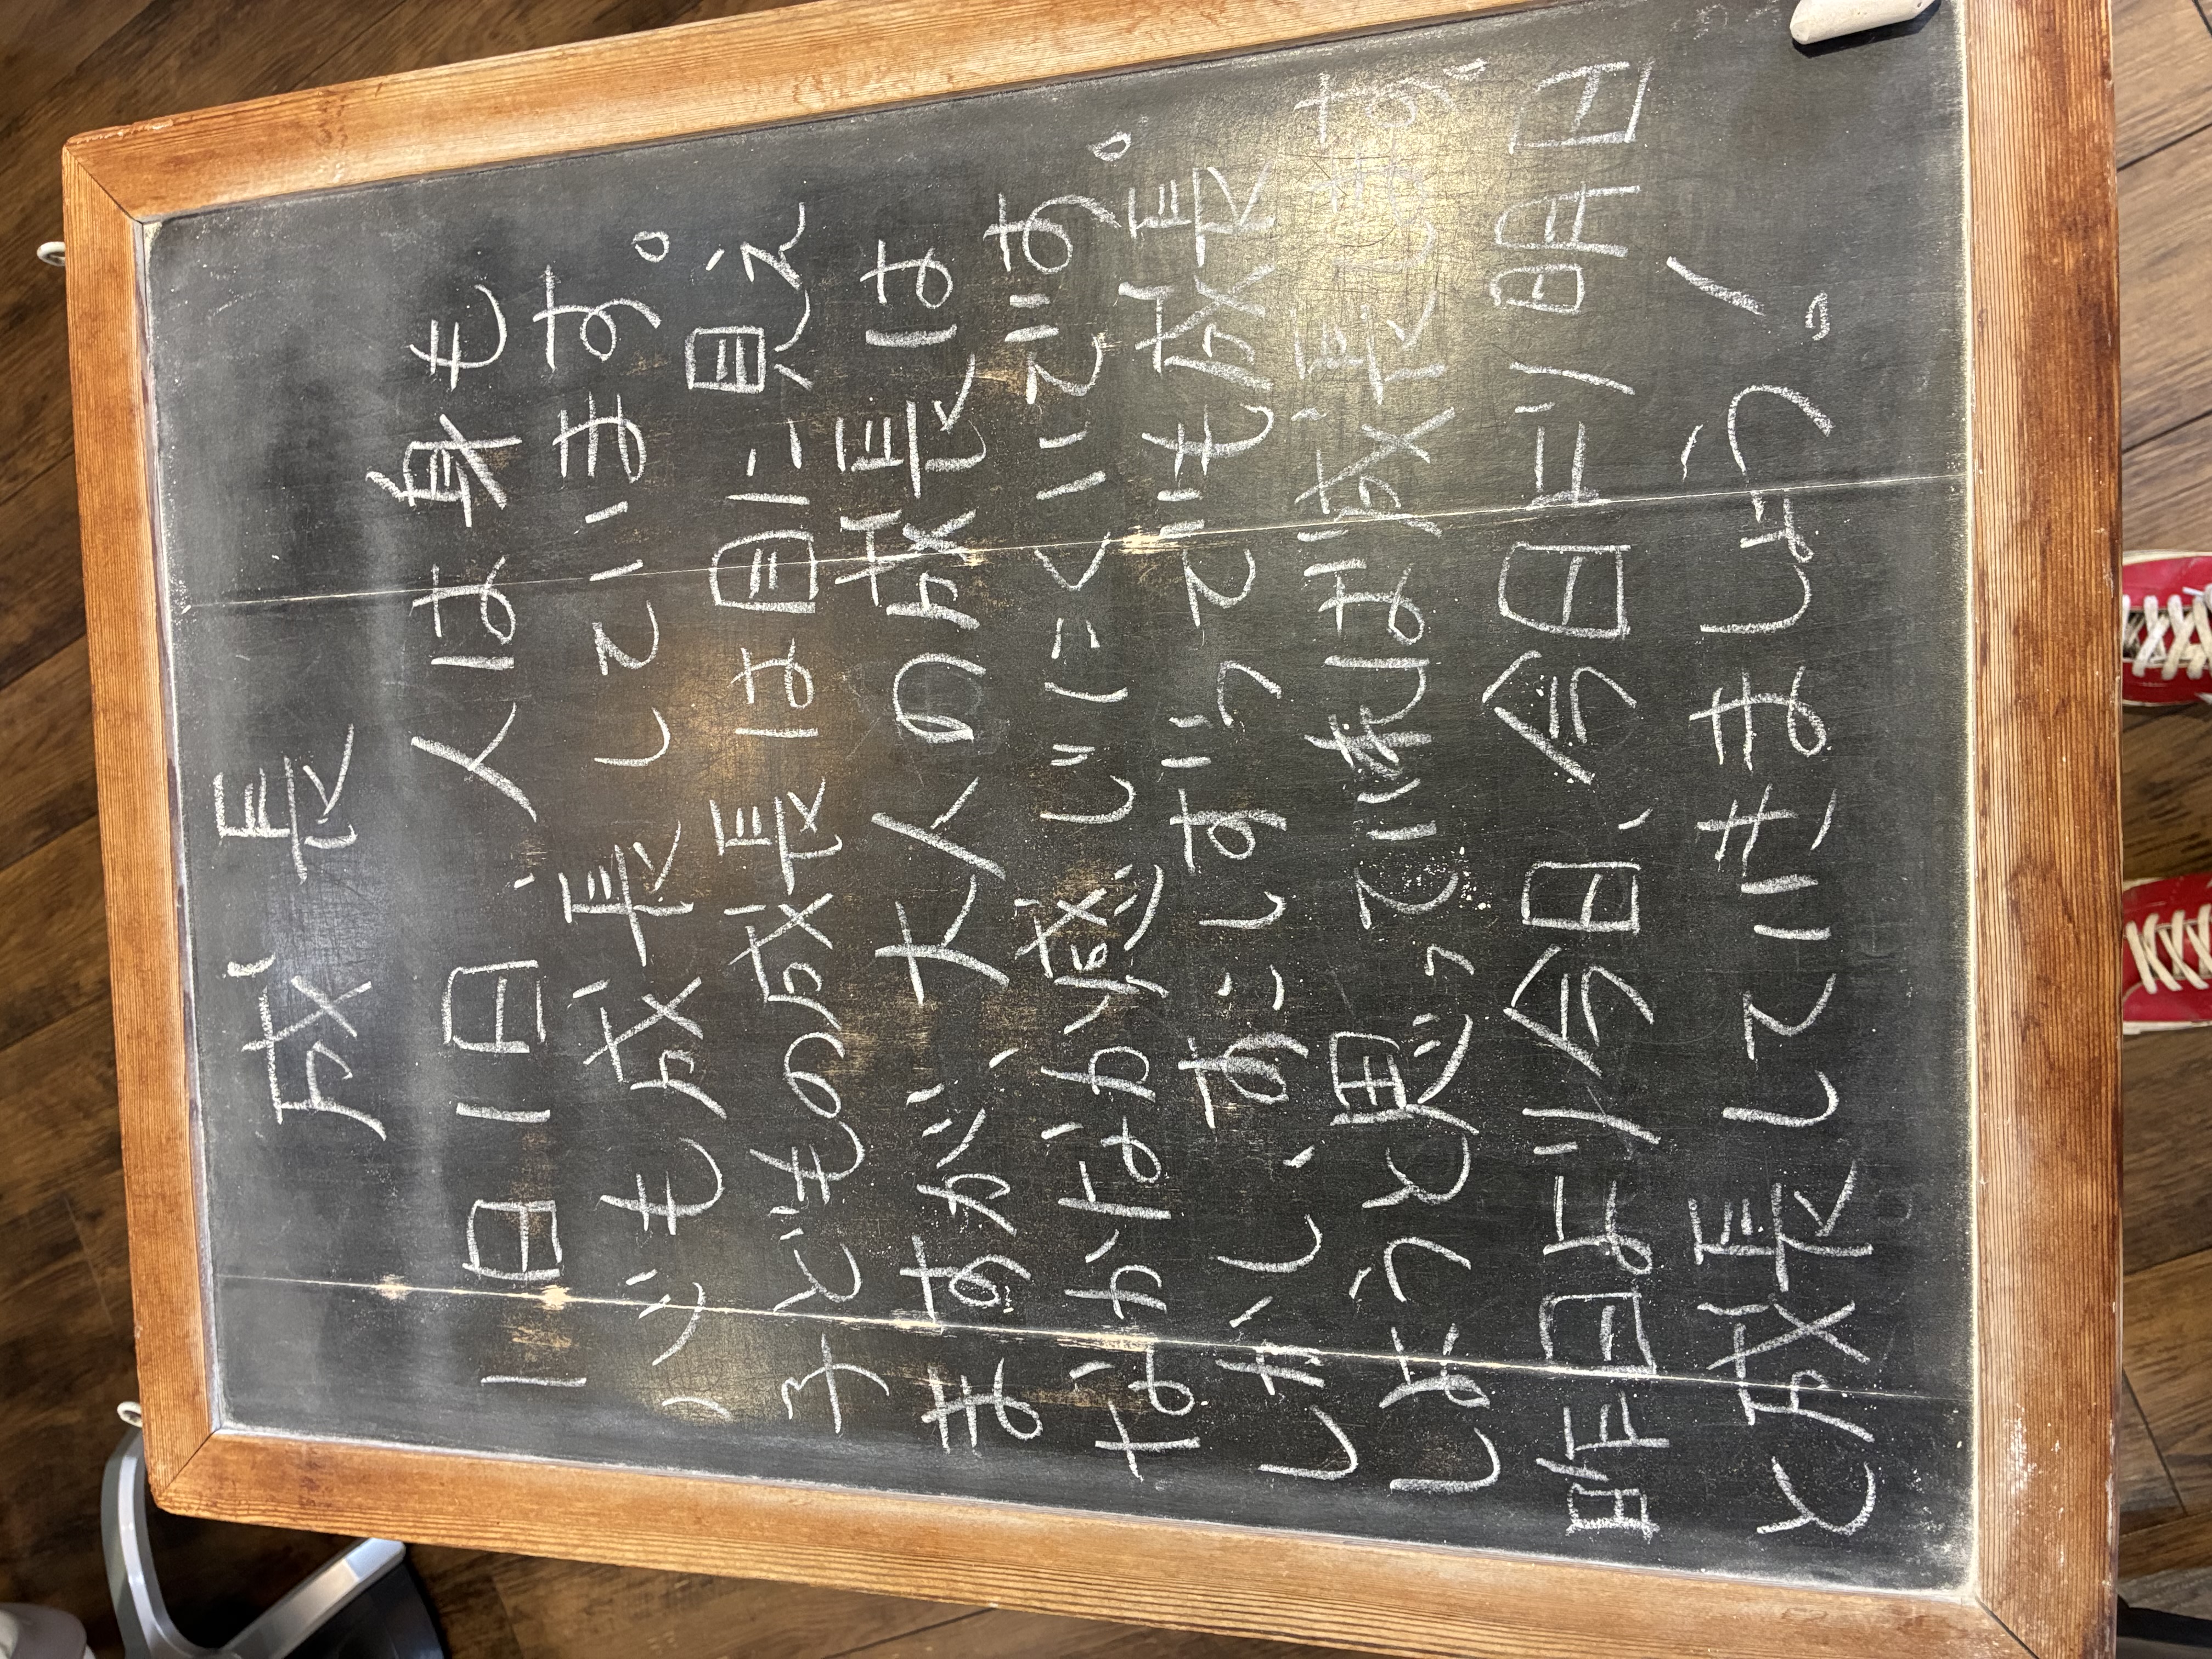 成長
1日1日、人は身も
心も成長しています。
子どもの成長は目に見え
ますが、大人の成長は
なかなか感じにくいです。
しかし、すこしずつでも成長
しようと思っていれば成長します。
昨日より今日、今日より明日
と成長していきましょう！